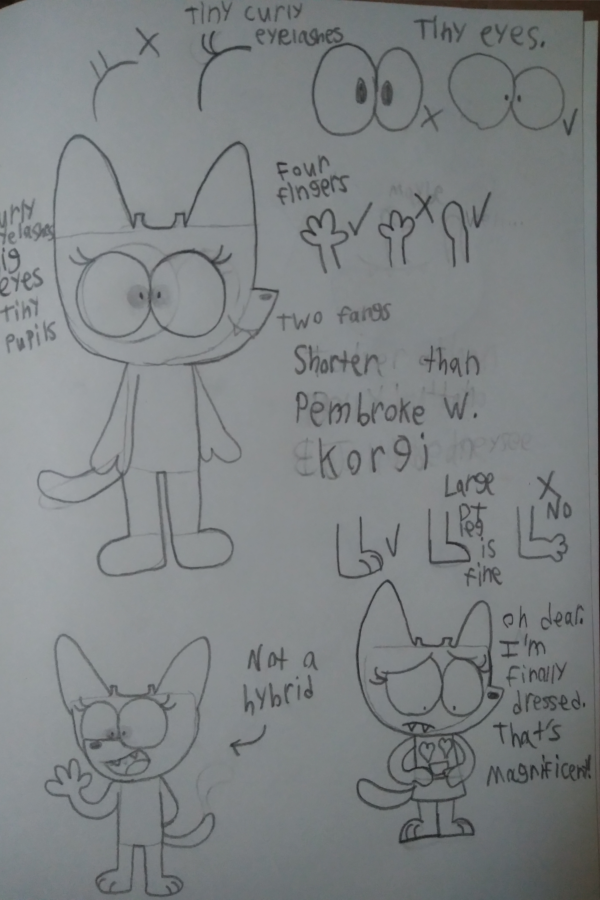 Tiny curly
eyelashes
Tiny eyes.
Four
fingers
urly
yelashes
ig
eyes
Tiny
Pupils
Two fangs
Shorter than
Pembroke W.
Korgi
Large
leg
is
fine
No
Not a
hybrid
oh dear.
I'm
finally
dressed.
That's
magnificent!